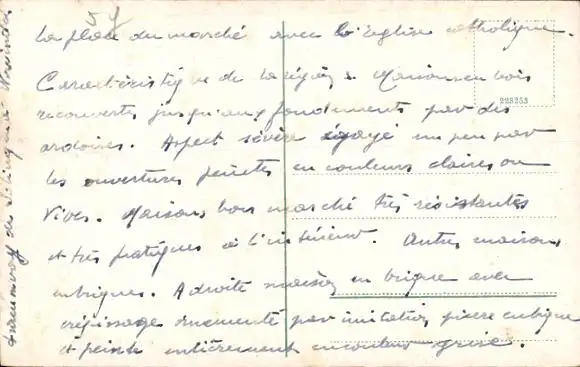 La place du marché avec l'église catholique.
Caractéristique de la région. Maisons en bois
recouvertes jusqu'aux fondements par des
ardoises. Aspect sévère égayé un peu par
les ouvertures peintes en couleurs claires ou
vives. Maisons bon marché très résistantes
et très pratiques à l'intérieur. Autres maisons
en briques. A droite maison en brique avec
crépissage ornementé par imitation pierre cubique
et peinte entièrement en couleur grise.
228253